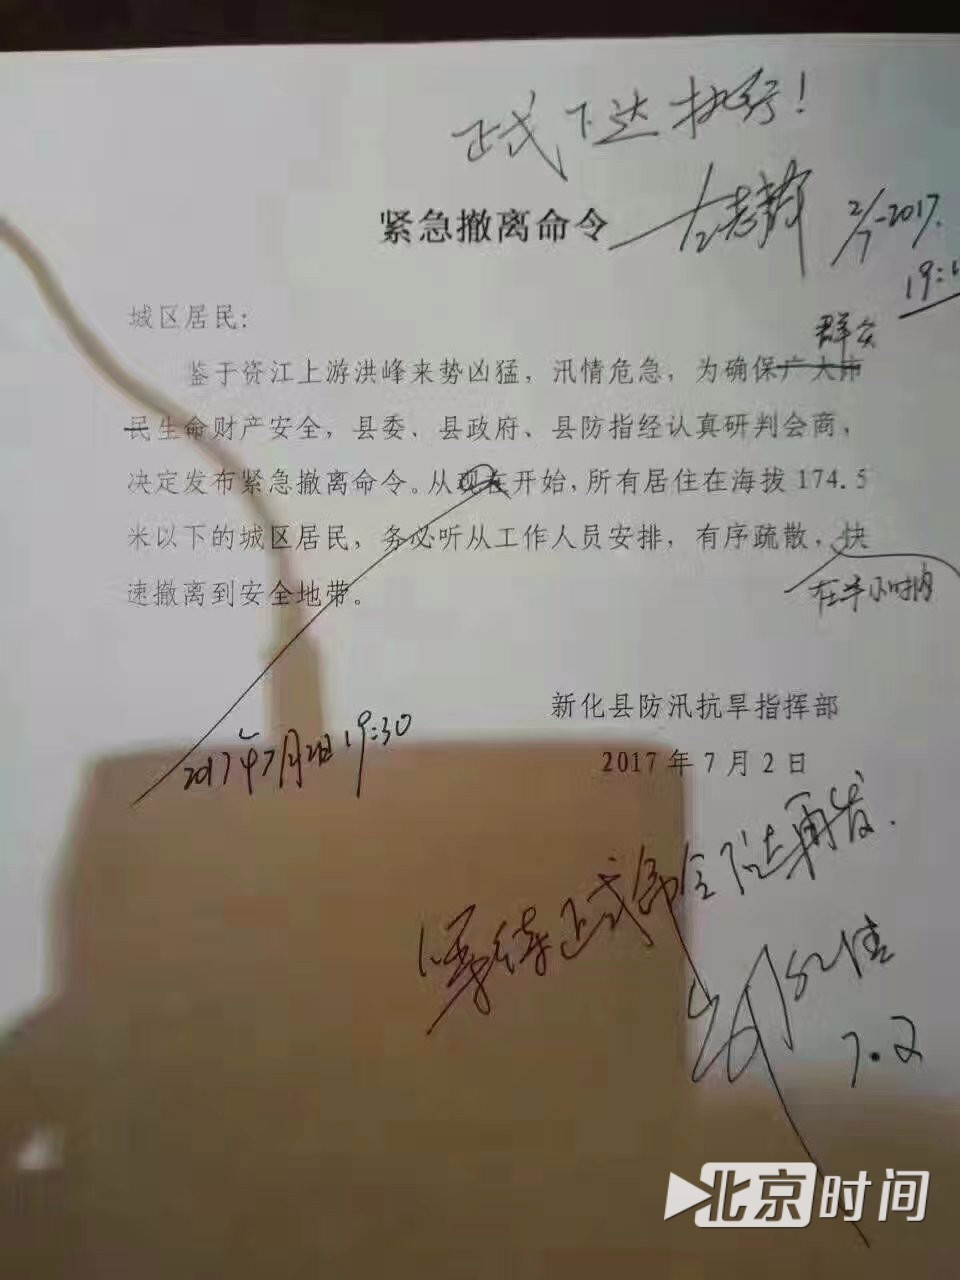 正式下达执行!
紧急撤离命令
左志锋 2/7-2017.
19:1
城区居民:
群众
鉴于资江上游洪峰来势凶猛,汛情危急,为确保广大市
民生命财产安全,县委、县政府、县防指经认真研判会商,
决定发布紧急撤离命令。从现在开始,所有居住在海拔 174.5
米以下的城区居民,务必听从工作人员安排,有序疏散,快
速撤离到安全地带。
在半小时内
新化县防汛抗旱指挥部
2017年7月2日 19:30
2017 年 7 月 2 日
等待正式命令下达再发.
7.2
北京时间